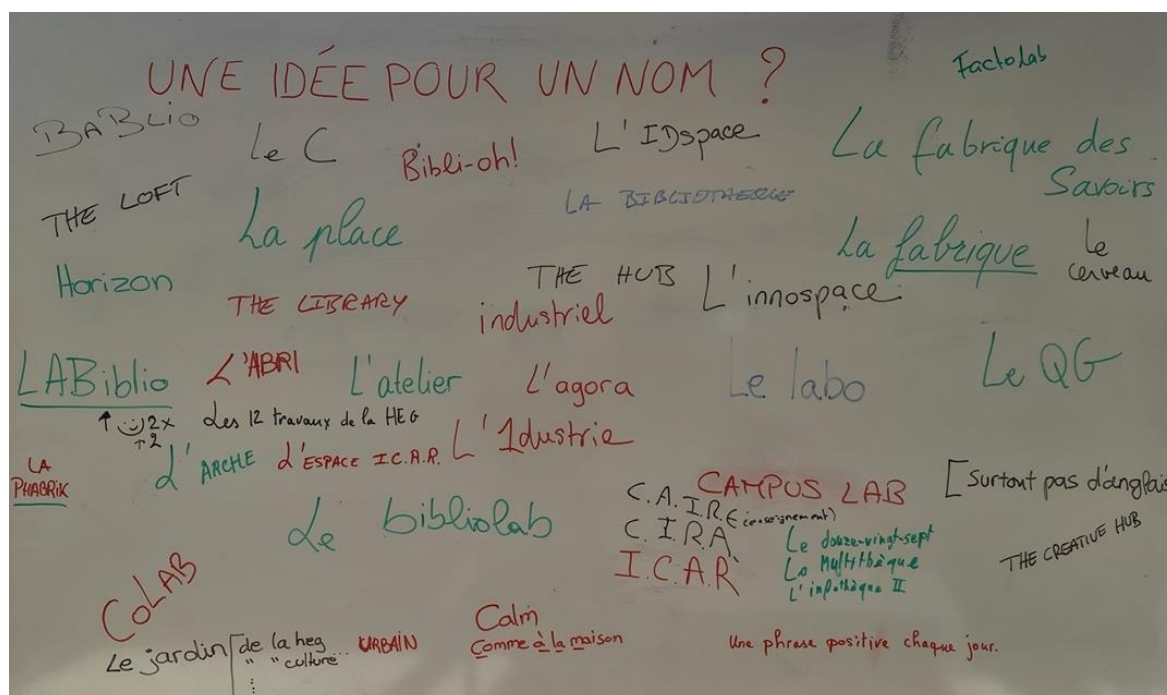 UNE IDÉE POUR UN NOM ?
Factolab
BABLiO
Le C
Bibli-oh!
L'IDspace
La fabrique des
Savoirs
THE LOFT
La place
LA BIBLIOTHEQUE
La fabrique
Le
cerveau
Horizon
THE LIBRARY
THE HUB
industriel
L'innospace
LABiblio
L'ABRI
L'atelier
L'agora
Le labo
Le QG
↑ 2x
↑2
Les 12 travaux de la HEG
L'1dustrie
LA
PHABRIK
L'ARCHE
L'ESPACE I.C.A.R.
Le bibliolab
CAMPUS LAB
[Surtout pas d'anglais
C.A.I.R.E (enseignement)
C.I.R.A.
I.C.A.R
Le douze-vingt-sept
La Multithèque
L'infothèque II
THE CREATIVE HUB
CoLAB
Le jardin [de la heg ... URBAIN
" " culture
Calm
Comme à la maison
Une phrase positive chaque jour.